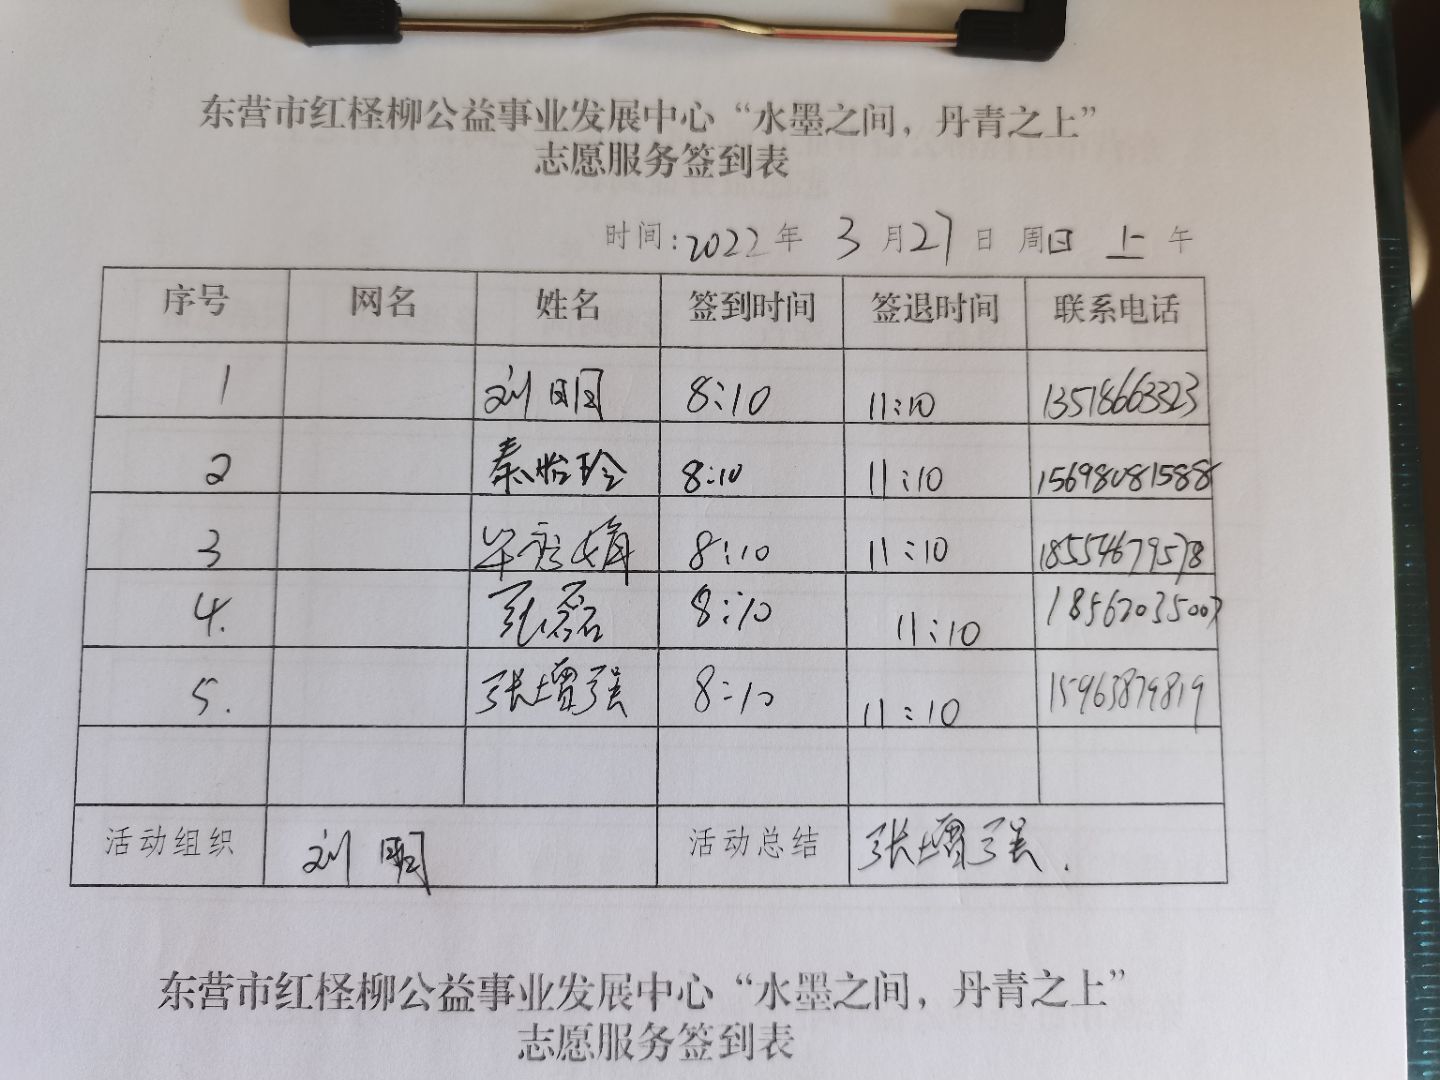 东营市红柽柳公益事业发展中心“水墨之间，丹青之上”
志愿服务签到表
时间:2022年 3月27日 周日 上午
序号 网名 姓名 签到时间 签退时间 联系电话
1 刘明 8:10 11:10 13518663323
2 秦怡玲 8:10 11:10 156980815888
3 8:10 11:10 18554679578
4. 张磊 8:10 11:10 18562035007
5. 张增强 8:10 11:10 15963879819
活动组织 刘明 活动总结 张增强.
东营市红柽柳公益事业发展中心“水墨之间，丹青之上”
志愿服务签到表